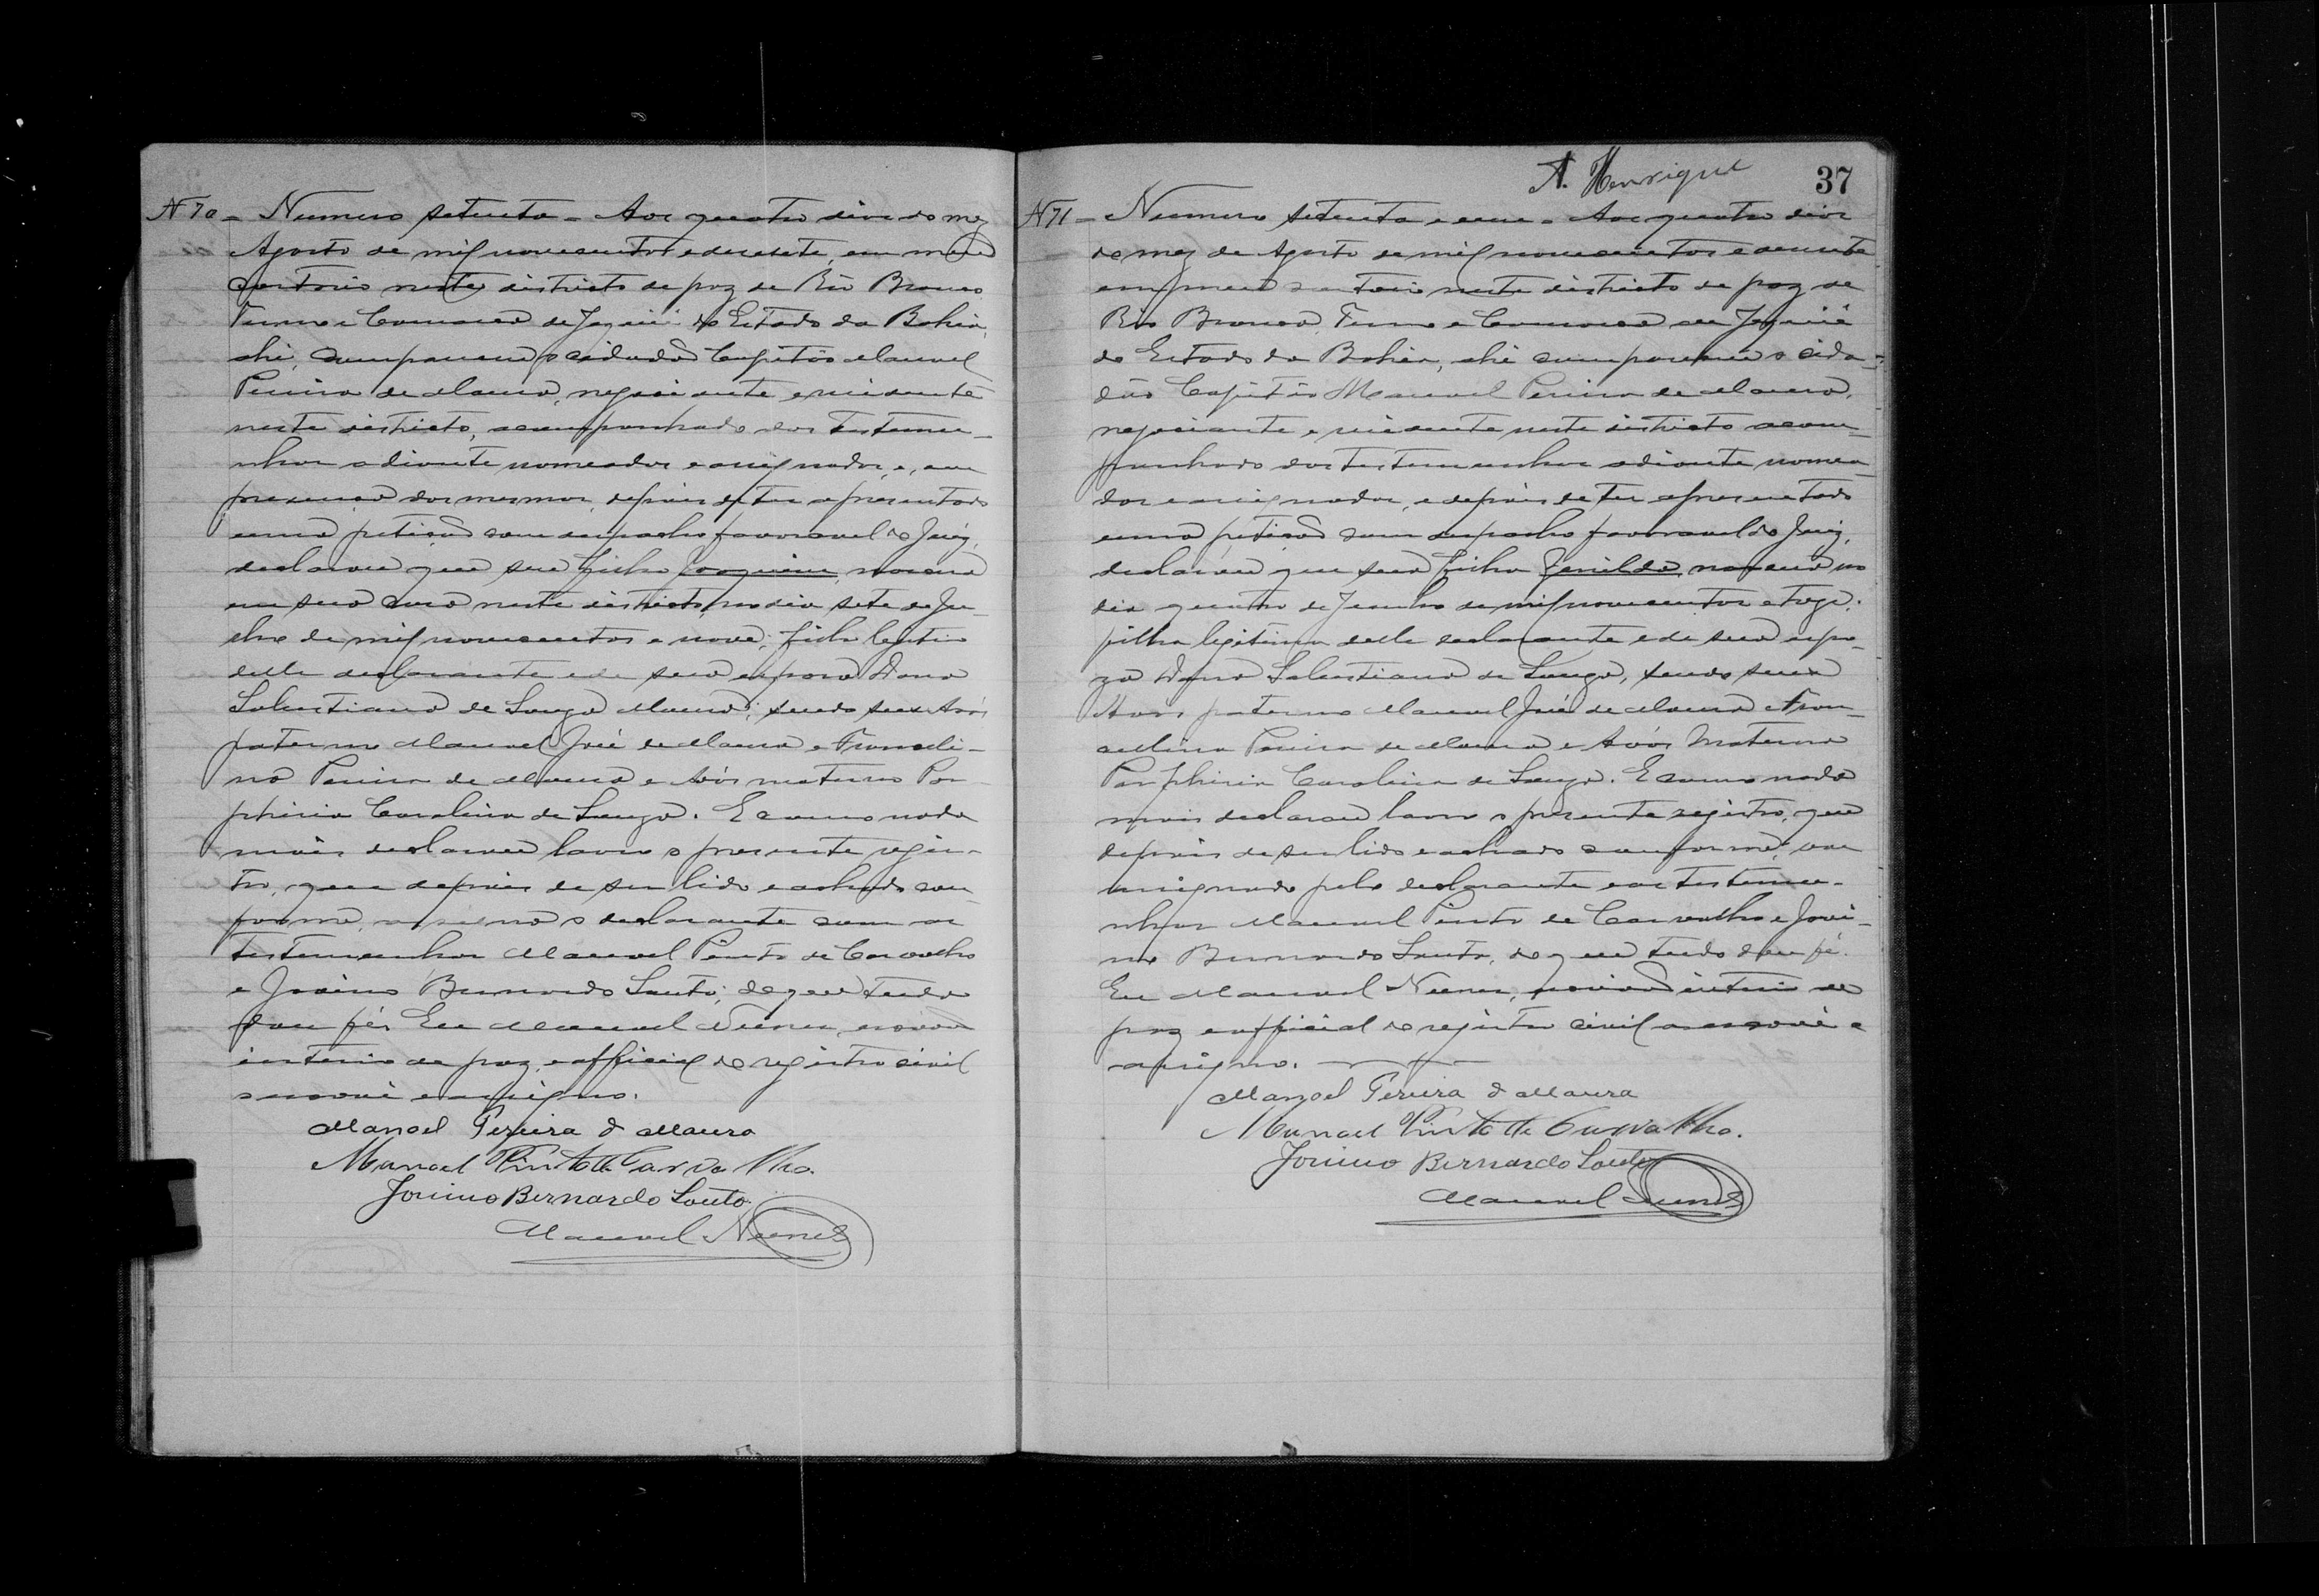 N 70 - Numero setenta - Aos quatro dias do mez
Agosto de mil novecentos e desesete, em meu
Cartorio neste districto de paz de Rio Branco
Termo e Comarca de Jequié do Estado da Bahia,
ahi, compareceu o cidadão Capitão Manoel
Pereira de Moura, negociante e residente
neste districto, acompanhado das testemu-
nhas adiante nomeadas e assignadas, e, em
presença das mesmas, depois de ter apresentado
uma petição com despacho favoravel do Juiz,
declarou que seu filho Joaquim, nasceu
em sua casa neste districto, no dia sete de Ju-
lho de mil novecentos e nove; filho legitimo
delle declarante e de sua esposa Dona
Salustiana de Souza Moura; sendo seus Avós
paterno Manoel José de Moura e Franceli-
na Pereira de Moura e Avós materno Por-
phiria Carolina de Souza. E como nada
mais declarou lavro o presente regis-
tro, que depois de ser lido e achado con-
forme, assigna o declarante com as
testemunhas Manoel Pinto de Carvalho
e Jovino Bernardo Souto; do que tudo
dou fé. Eu Manoel Nunes, escrivão
interino de paz, e official do registro civil
o escrevi e assigno.
Manoel Pereira d Moura
Manoel Pinto de Carvalho.
Jovino Bernardo Souto.
Manoel Nunes
A. Henrique
37
N 71 - Numero setenta e um - Aos quatro dias
do mez de Agosto de mil novecentos e desesete
em meu cartorio neste districto de paz de
Rio Branco, Termo e Comarca de Jequié
do Estado da Bahia, ahi compareceu o cida-
dão Capitão Manoel Pereira de Moura,
negociante e residente neste districto acom-
panhado das testemunhas adiante nomea-
das e assignadas, e depois de ter apresentado
uma petição com despacho favoravel do Juiz,
declarou que sua filha Genilda, nasceu no
dia quatro de Junho de mil novecentos e treze;
filha legitima delle declarante e de sua espo-
za Dona Salustiana de Souza, sendo seus
Avós paterno Manoel José de Moura e Fran-
cellina Pereira de Moura e Avós Materno
Porphiria Carolina de Souza. E como nada
mais declarou lavro o presente registro, que
depois de ser lido e achado conforme, vae
assignado pelo declarante e as testemu-
nhas Manoel Pinto de Carvalho e Jovi-
no Bernardo Souto, do que tudo dou fé.
Eu Manoel Nunes, escrivão interino de
paz e official do registro civil o escrevi e
assigno.
Manoel Pereira d Moura
Manoel Pinto de Carvalho.
Jovino Bernardo Souto
Manoel Nunes